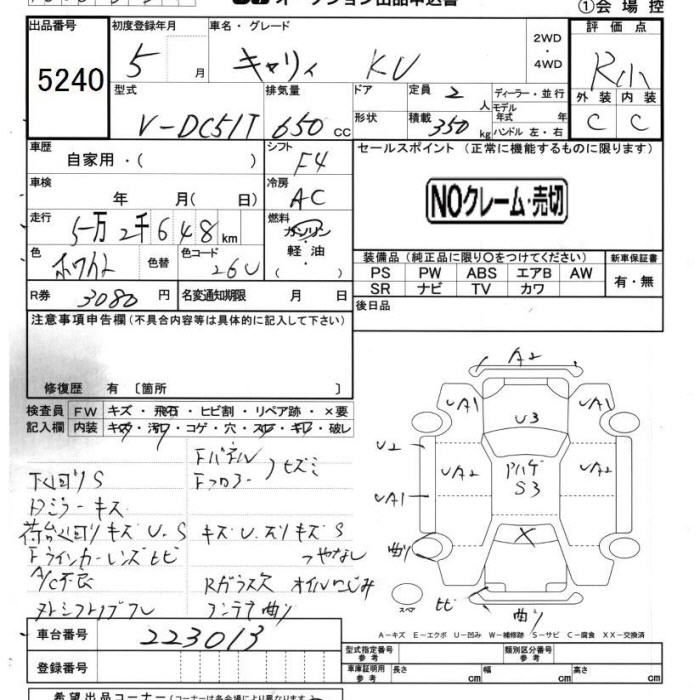 ①会場控
出品番号 初度登録年月 車名・グレード 2WD ・ 4WD 評価点
5240 5 月 キャリィ KU R小
型式 排気量 ドア 定員 2 人 ディーラー・並行 外装 内装
V-DC51T 650 cc 形状 積載 350 kg モデル年式 年 ハンドル 左・右 C C
車歴 自家用・( ) シフト F4 セールスポイント (正常に機能するものに限ります)
車検 年 月( 日) 冷房 AC
NOクレーム・売切
走行 5万2千648 km 燃料 ガソリン 軽油 ( )
色 ホワイト 色替 色コード 26U 装備品 (純正品に限り○をつけてください) 新車保証書
PS PW ABS エアB AW 有・無
SR ナビ TV カワ
R券 3080円 名変通知期限 月 日 後日品
注意事項申告欄 (不具合内容等は具体的に記入して下さい)
修復歴 有 〔箇所 〕
検査員 FW キズ・飛石・ヒビ割・リペア跡・×要
記入欄 内装 キズ・汚レ・コゲ・穴・スレ・キレ・破レ
A2
UA1 UA1
U3
U2 UA2 アハゲ S3 UA2
UA1
曲り
スペア ヒビ 曲り
Fパネル
Fフロアー サビミ
下回りS
Dミラーキズ
荷台回りキズU.S キズU.スリキズS
Fウインカーレンズヒビ つやなし
A/C不良 Rガラス欠 オイルにじみ
曲り
A-キズ E-エクボ U-凹み W-補修跡 S-サビ C-腐食 XX-交換済
車台番号 223013
型式指定番号 参考 類別区分番号 参考
登録番号
車庫証明用 参考 長さ cm 幅 cm 高さ cm
希望出品コーナー